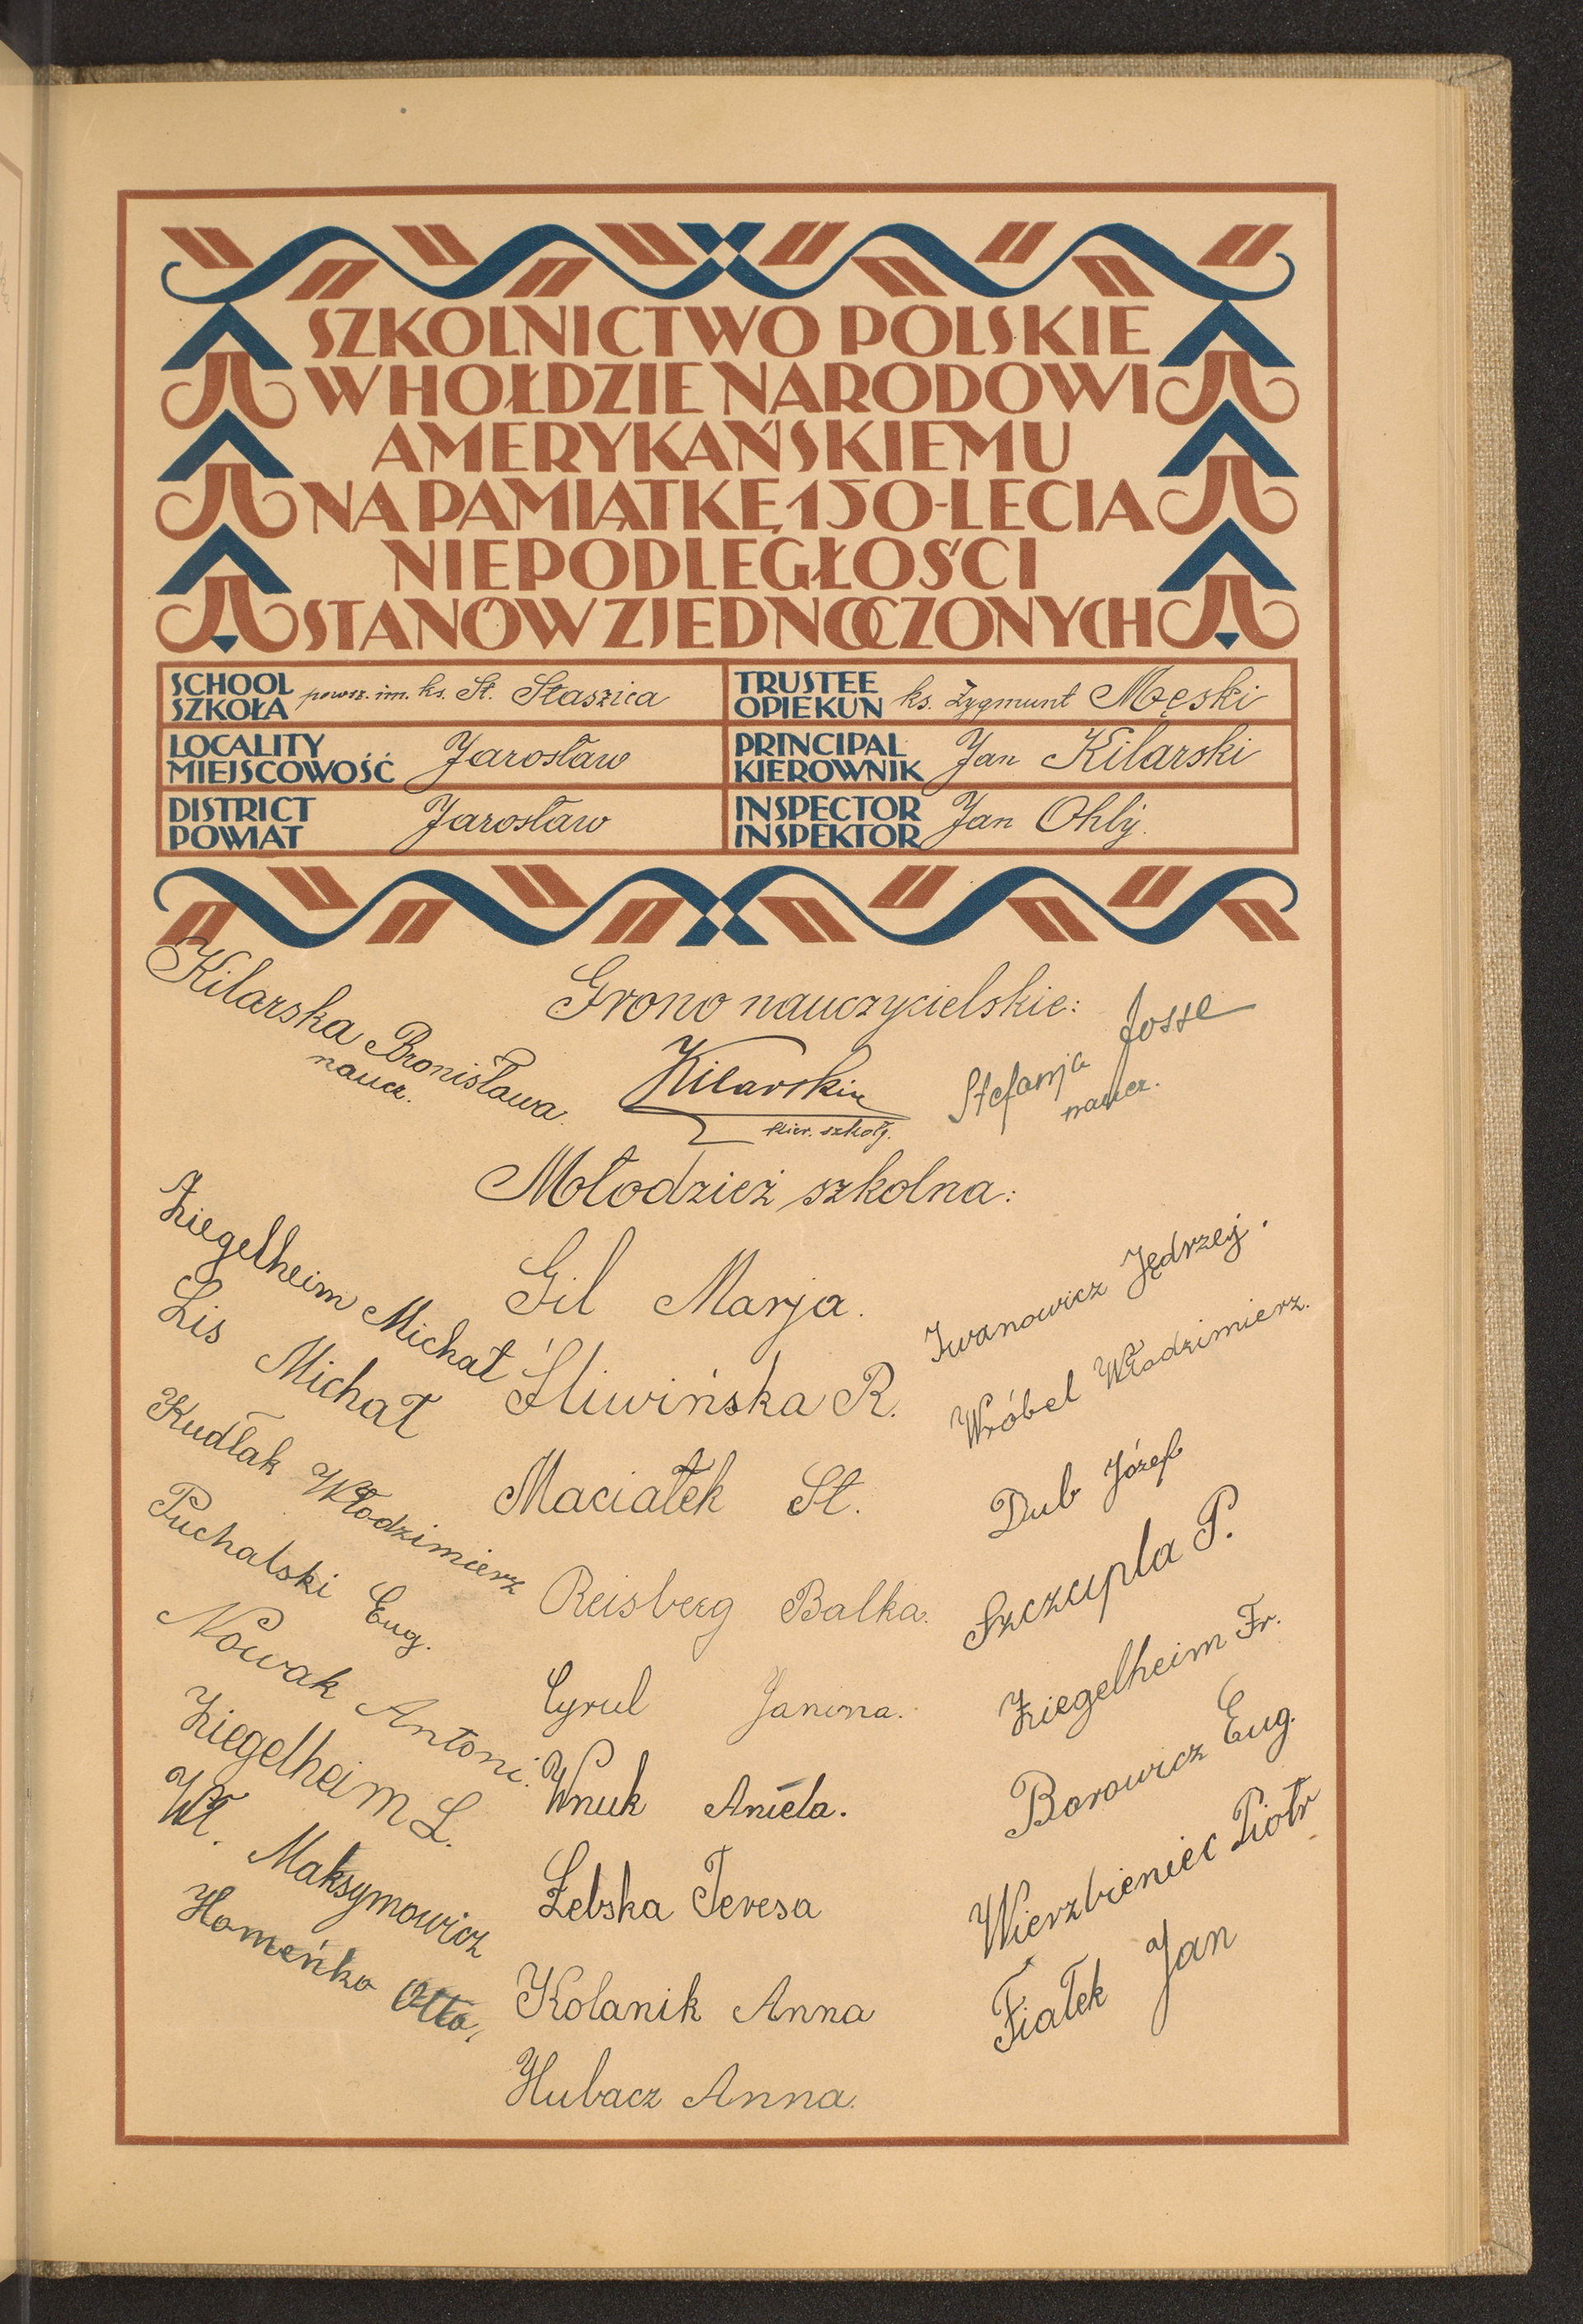 SZKOLNICTWO POLSKIE
W HOŁDZIE NARODOWI
AMERYKAŃSKIEMU
NA PAMIĄTKĘ 150-LECIA
NIEPODLEGŁOŚCI
STANÓW ZJEDNOCZONYCH
SCHOOL
SZKOŁA
powsz. im. ks. St. Staszica
TRUSTEE
OPIEKUN
ks. Zygmunt Męski
LOCALITY
MIEJSCOWOŚĆ
Jarosław
PRINCIPAL
KIEROWNIK
Jan Kilarski
DISTRICT
POWIAT
Jarosław
INSPECTOR
INSPEKTOR
Jan Ohly
Grono nauczycielskie:
Kilarska Bronisława
naucz.
Kilarski
kier. szkoły.
Stefanja Josse
naucz.
Młodzież szkolna:
Ziegelheim Michał
Lis Michał
Kudłak Włodzimierz
Puchalski Eug.
Nowak Antoni.
Ziegelheim L.
Wł. Maksymowicz
Homeńko Otto.
Gil Marja.
Śliwińska R.
Maciałek St.
Reisberg Balka.
Cyrul Janina.
Wnuk Aniela.
Łebska Teresa
Kolanik Anna
Hubacz Anna.
Iwanowicz Jędrzej.
Wróbel Włodzimierz.
Dub Józef
Szczupla P.
Ziegelheim Fr.
Borowicz Eug.
Wierzbieniec Piotr
Fiałek Jan